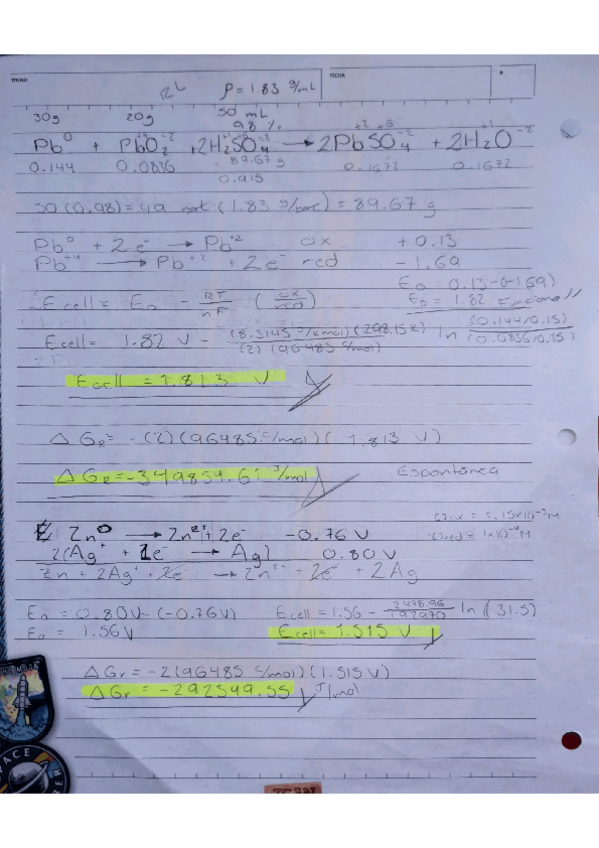 TITULO FECHA
RL ρ = 1.83 g/mL
30g 20g 50 mL
98 %
+4 -2 +1 +6 -2 +2 +6 -2 +1 -2
Pb⁰ + PbO₂ + 2H₂SO₄ → 2PbSO₄ + 2H₂O
0.144 0.0836 89.67 g 0.1672 0.1672
0.915
50 (0.98) = 49 (1.83 g/ ) = 89.67 g
Pb⁰ + 2 e⁻ → Pb⁺² ox + 0.13
Pb⁺⁴ → Pb⁺² + 2 e⁻ red - 1.69
E₀ = 0.13-(-1.69)
E₀ = 1.82 Funciona//
Ecell = E₀ - RT/nF (ox/red)
Ecell = 1.82 V - (8.3145 J/kmol)(298.15 K)/(2)(96485 C/mol) ln (0.144/0.15)/(0.0836/0.15)
Ecell = 1.813 V
Δ G_R = -(2)(96485 C/mol)( 1.813 V)
Δ G_R = -349854.61 J/mol Espontánea
Zn⁰ → Zn²⁺ + 2e⁻ -0.76 V
2(Ag⁺ + 1e⁻ → Ag) 0.80 V
Zn + 2Ag⁺ + 2e⁻ → Zn²⁺ + 2e⁻ + 2 Ag
E₀ = 0.80V - (-0.76V) Ecell = 1.56 - 2478.96/192970 ln (31.5)
E₀ = 1.56V Ecell = 1.515 V
ΔGr = -2(96485 C/mol)(1.515 V)
ΔGr = -292349.55 J/mol